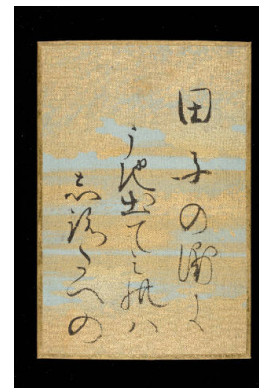 田子の浦に
うち出てみれハ
志ろたへの